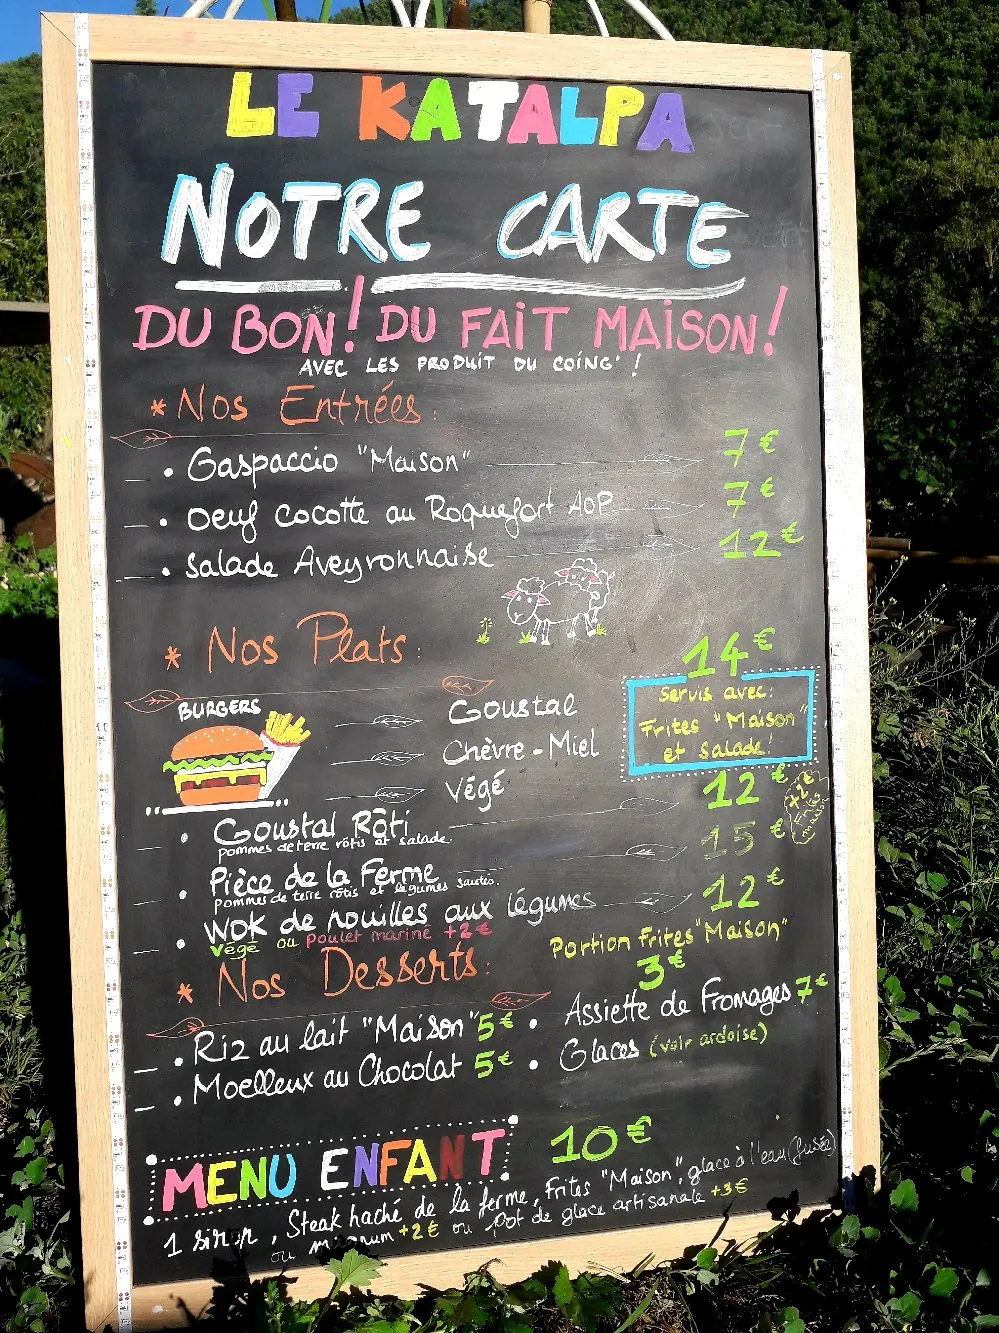 LE KATALPA
NOTRE CARTE
DU BON! DU FAIT MAISON!
AVEC LES PRODUIT DU COING' !
* Nos Entrées :
• Gaspaccio "Maison" 7€
• Oeuf cocotte au Roquefort AOP 7€
• Salade Aveyronnaise 12€
* Nos Plats : 14€
BURGERS
Goustal
Chèvre - Miel
Végé
Servis avec :
Frites "Maison"
et salade!
• Goustal Rôti 12€
pommes de terre rôtis et salade.
+2€ Frites maison
• Pièce de la Ferme 15€
pommes de terre rôtis et légumes sautés.
• Wok de nouilles aux légumes 12€
Végé ou poulet mariné +2€
Portion Frites "Maison"
3€
* Nos Desserts :
• Riz au lait "Maison" 5€
• Moelleux au Chocolat 5€
• Assiette de Fromages 7€
• Glaces (voir ardoise)
MENU ENFANT 10€
1 sirop, Steak haché de la ferme, Frites "Maison", glace à l'eau (fusée)
ou magnum +2€ ou pot de glace artisanale +3€